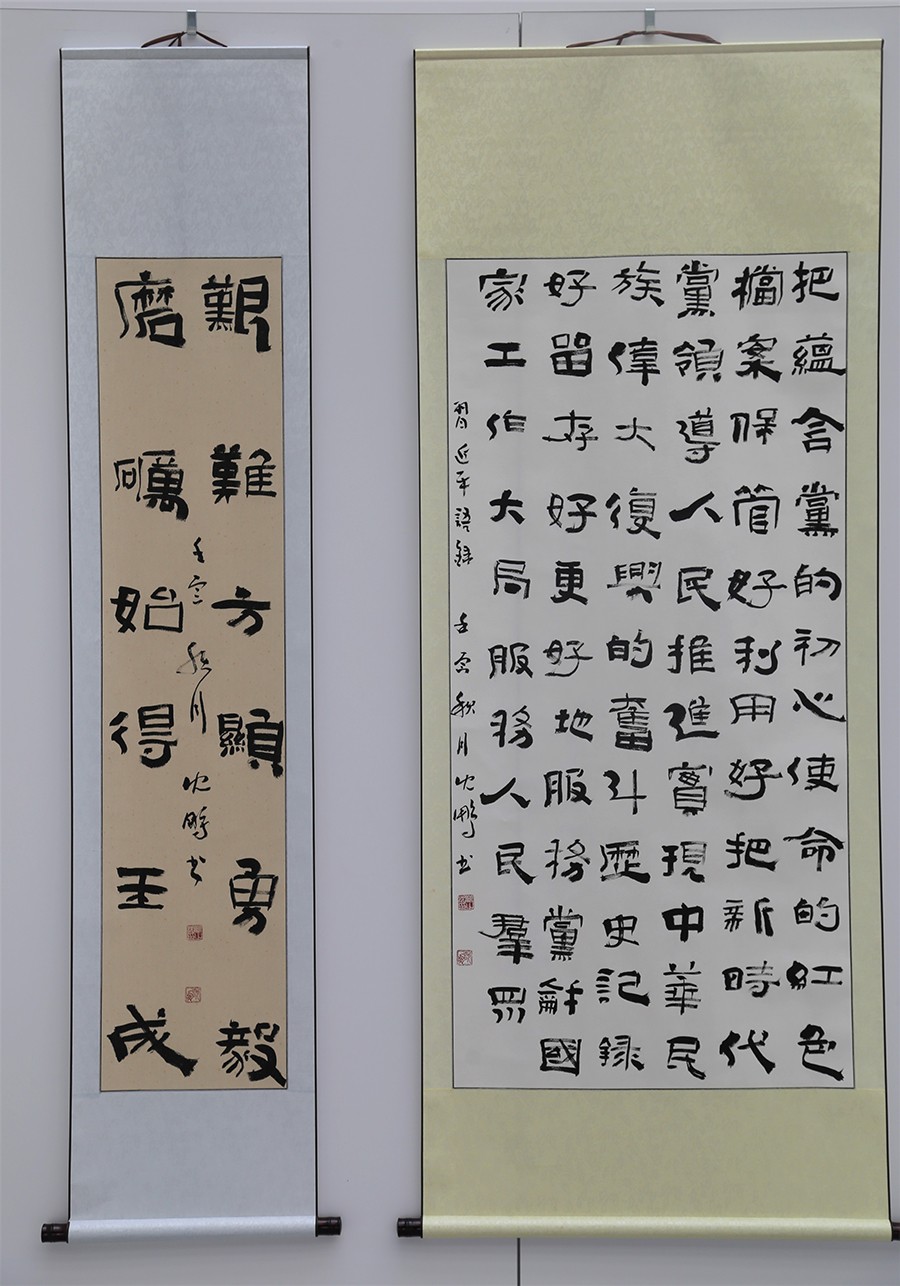 把蘊含黨的初心使命的紅色
檔案保管好利用好把新時代
黨領導人民推進實現中華民
族偉大復興的奮斗歷史記錄
好留存好更好地服務黨龢國
家工作大局服務人民羣眾
習近平語錄 壬寅秋月沈鵬书
艱難方顯勇毅
磨礪始得玉成
壬寅秋月沈鵬书